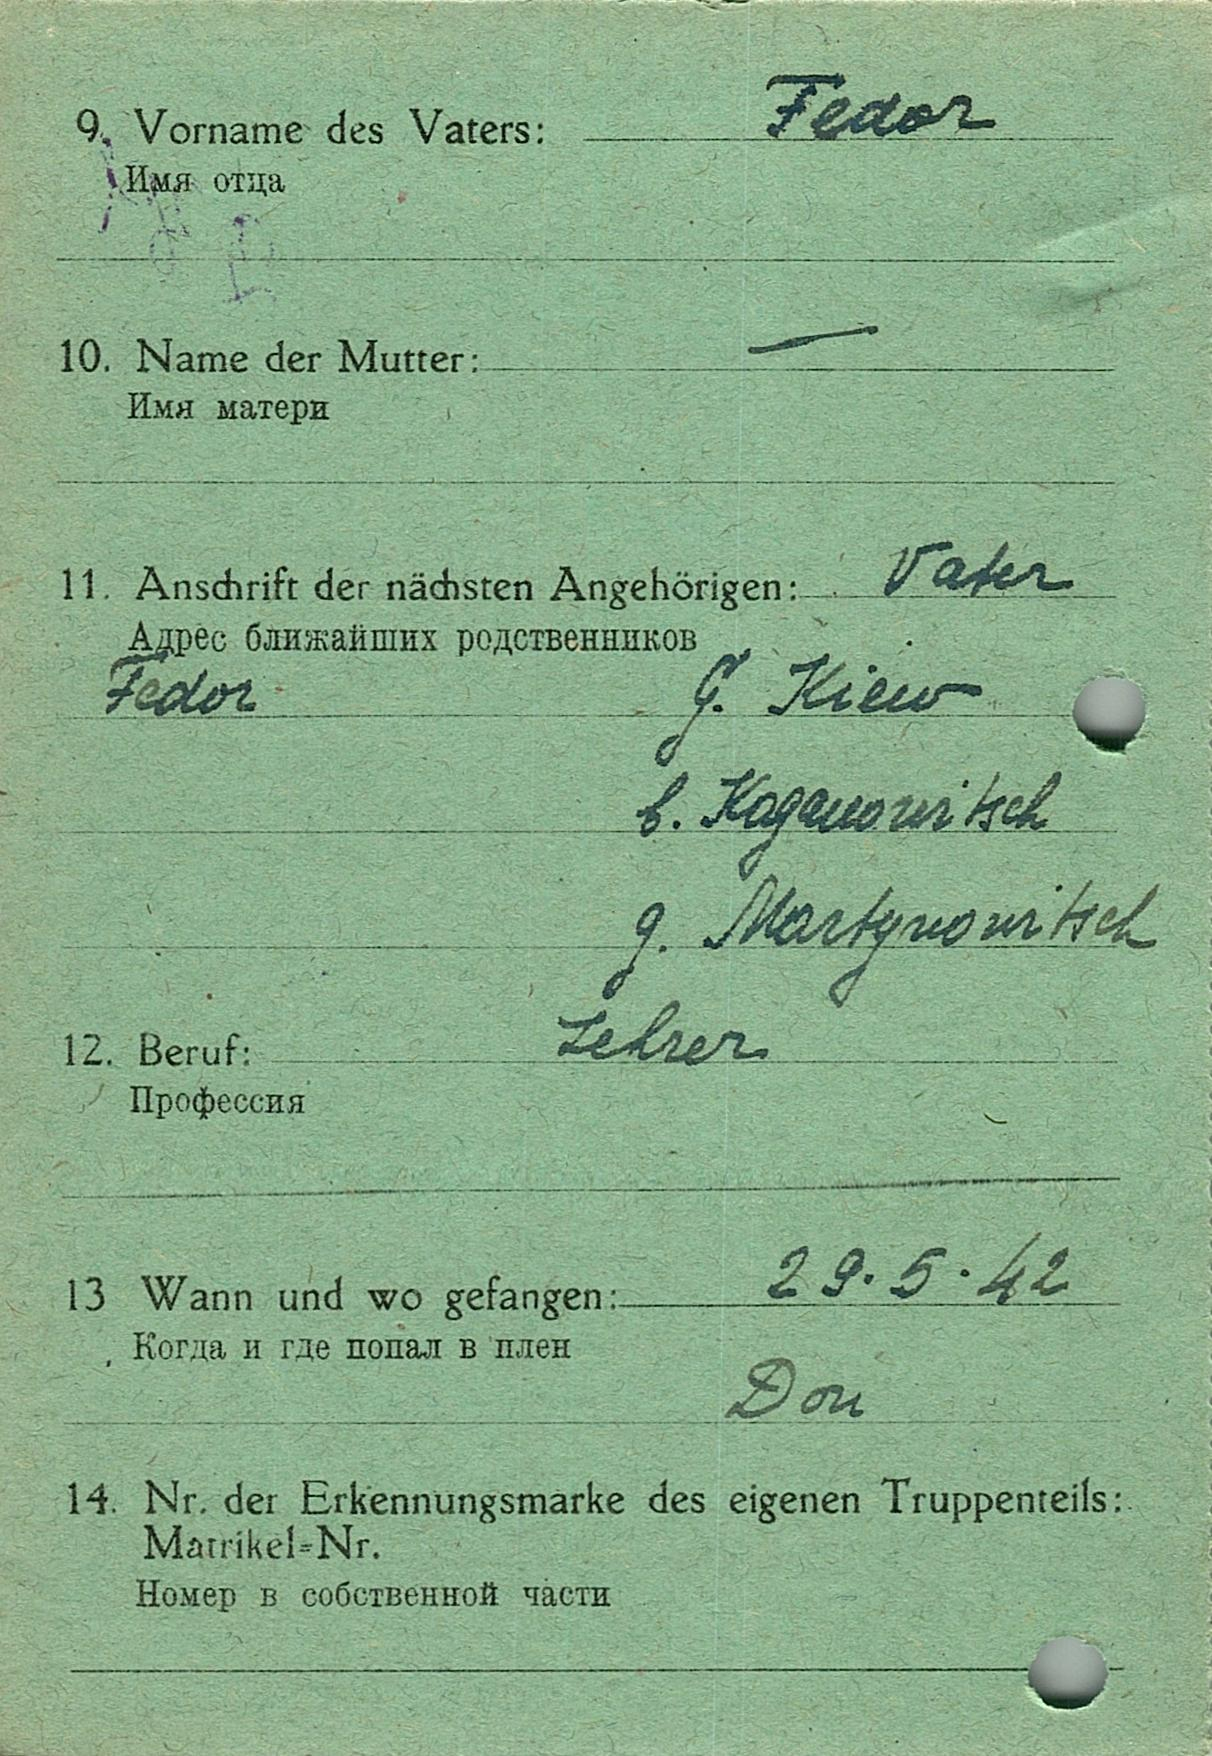 9. Vorname des Vaters: Fedor
Имя отца
10. Name der Mutter: —
Имя матери
11. Anschrift der nächsten Angehörigen: Vater
Адрес ближайших родственников
Fedor G. Kiew
b. Kaganowitsch
g. Martynowitsch
12. Beruf: Lehrer
Профессия
13 Wann und wo gefangen: 29.5.42
Когда и где попал в плен
Don
14. Nr. der Erkennungsmarke des eigenen Truppenteils:
Matrikel=Nr.
Номер в собственной части